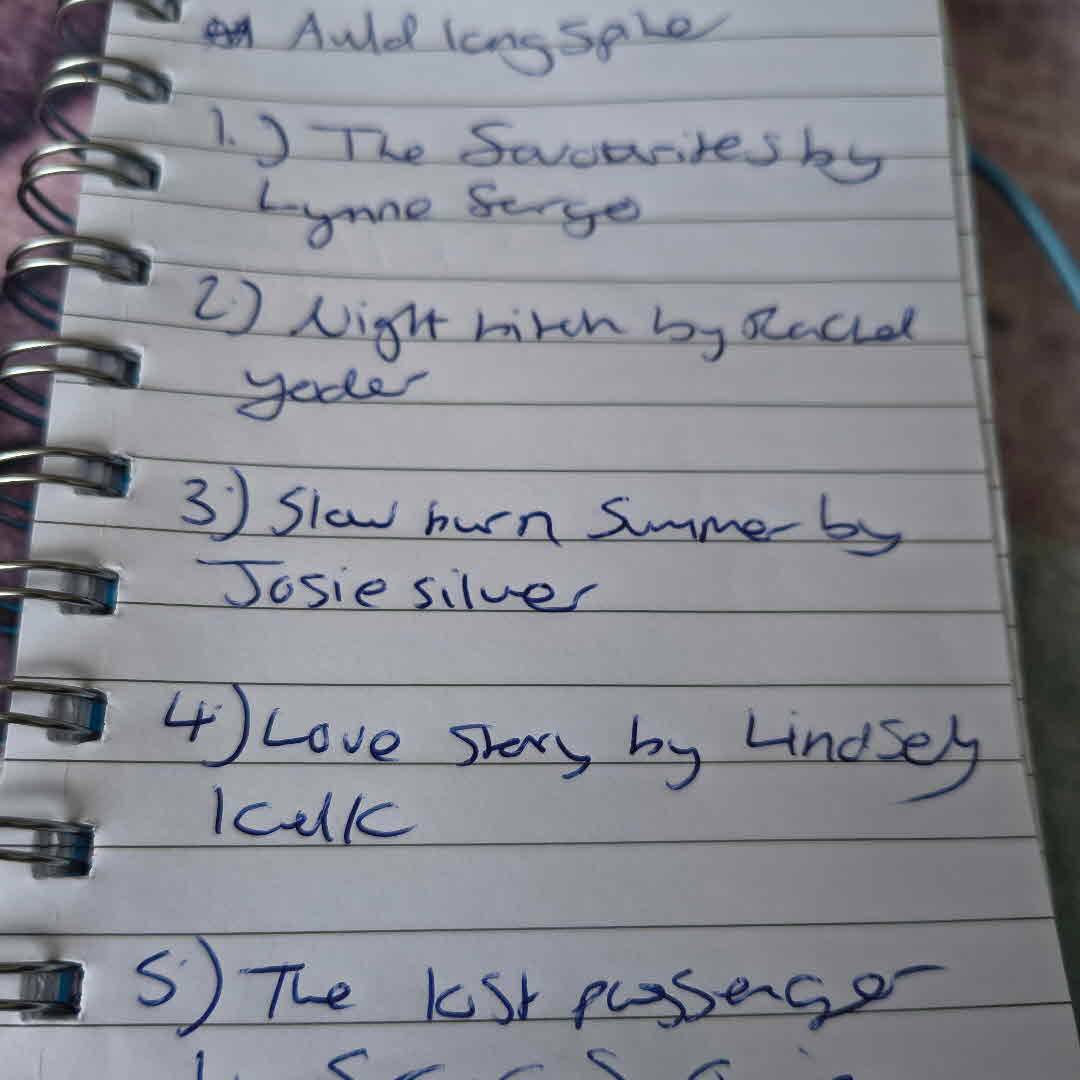 Auld lang Spike
1.) The Favourites by
Lynne Fargo
2.) Night bitch by Rachel
Yoder
3.) Slow burn Summer by
Josie silver
4.) Love Story by Lindsey
Kelk
5.) The lost passenger